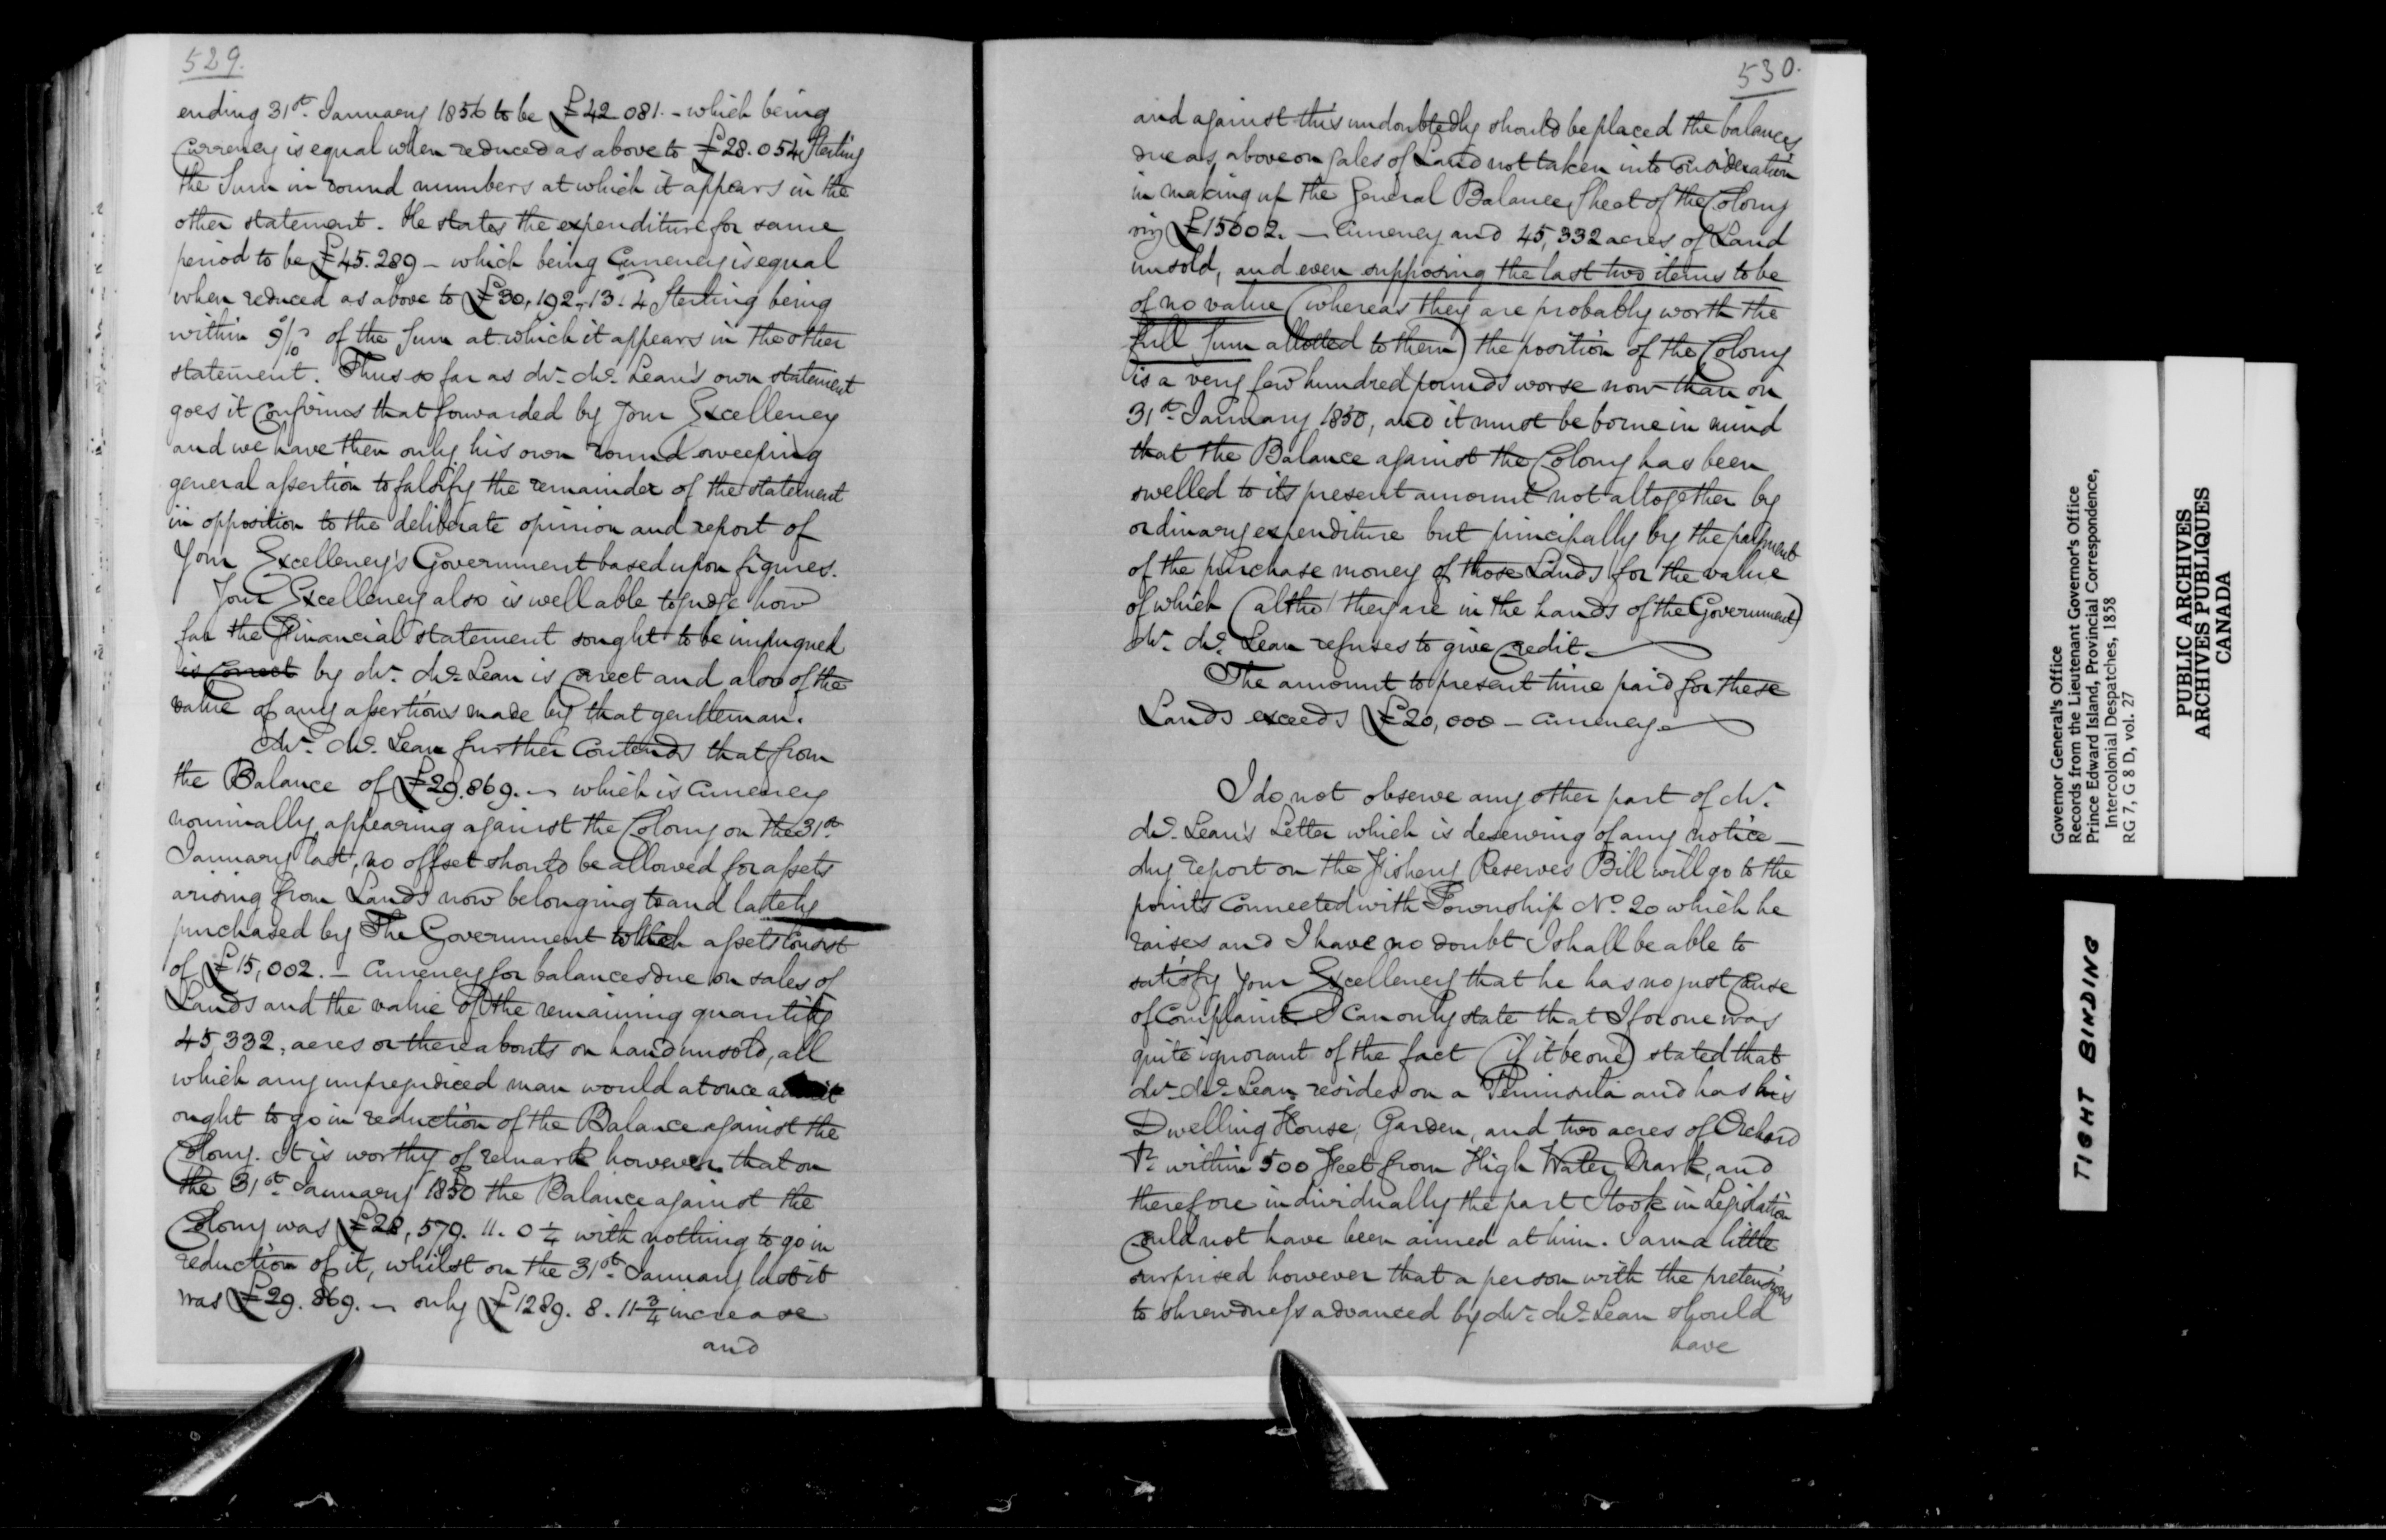 529.
ending 31st January 1856 to be £42.081.- which being
Currency is equal when reduced as above to £28.054 Sterling
the Sum in round numbers at which it appears in the
other statement. He states the expenditure for same
period to be £45.289 - which being Currency is equal
when reduced as above to £30,192.13.4 Sterling being
within 9/10 of the Sum at which it appears in the other
statement. Thus so far as Mr. Mc.Lean's own statement
goes it Confirms that forwarded by Your Excellency
and we have then only his own round sweeping
general assertion to falsify the remainder of the statement
in opposition to the deliberate opinion and report of
Your Excellency's Government based upon figures.
Your Excellency also is well able to judge how
far the Financial statement sought to be impugned
is Correct by Mr. Mc.Lean is Correct and also of the
value of any assertions made by that gentleman.
Mr. Mc.Lean further Contends that from
the Balance of £29.869.- which is Currency
nominally appearing against the Colony on the 31st
January last, no offset should be allowed for assets
arising from Lands now belonging to and lately
purchased by The Government which assets Consist
of £15,002.- Currency for balances due on sales of
Lands and the value of the remaining quantity
45,332, acres or thereabouts on hand unsold, all
which any unprejudiced man would at once admit
ought to go in reduction of the Balance against the
Colony. It is worthy of remark however that on
the 31st January 1850 the Balance against the
Colony was £28,579.11.0¼ with nothing to go in
reduction of it, whilst on the 31st January last it
was £29.869.- only £1289.8.11¾ increase
and
530.
and against this undoubtedly should be placed the balances
due as above on Sales of Land not taken into Consideration
in making up the General Balance Sheet of the Colony
viz £15002.- Currency and 45,332 acres of Land
unsold, and even supposing the last two items to be
of no value (whereas they are probably worth the
full Sum allotted to them) the position of the Colony
is a very few hundred pounds worse now than on
31st January 1850, and it must be borne in mind
that the Balance against the Colony has been
swelled to its present amount not altogether by
ordinary expenditure but principally by the payment
of the purchase money of those Lands for the value
of which (altho' they are in the hands of the Government)
Mr. Mc.Lean refuses to give Credit.
The amount to present time paid for these
Lands exceeds £20,000 - Currency.
I do not observe any other part of Mr.
Mc.Lean's Letter which is deserving of any notice -
My report on the Fishery Reserves Bill will go to the
points Connected with Township No. 20 which he
raises and I have no doubt I shall be able to
satisfy Your Excellency that he has no just Cause
of Complaint. I Can only state that I for one was
quite ignorant of the fact (if it be one) stated that
Mr. Mc.Lean resides on a Peninsula and has his
Dwelling House, Garden, and two acres of Orchard
&c within 500 Feet from High Water Mark, and
therefore individually the part I took in Legislation
Could not have been aimed at him. I am a little
surprised however that a person with the pretensions
to shrewdness advanced by Mr. Mc.Lean should
have
Governor General's Office
Records from the Lieutenant Governor's Office
Prince Edward Island, Provincial Correspondence,
Intercolonial Despatches, 1858
RG 7, G 8 D, vol. 27
PUBLIC ARCHIVES
ARCHIVES PUBLIQUES
CANADA
TIGHT BINDING